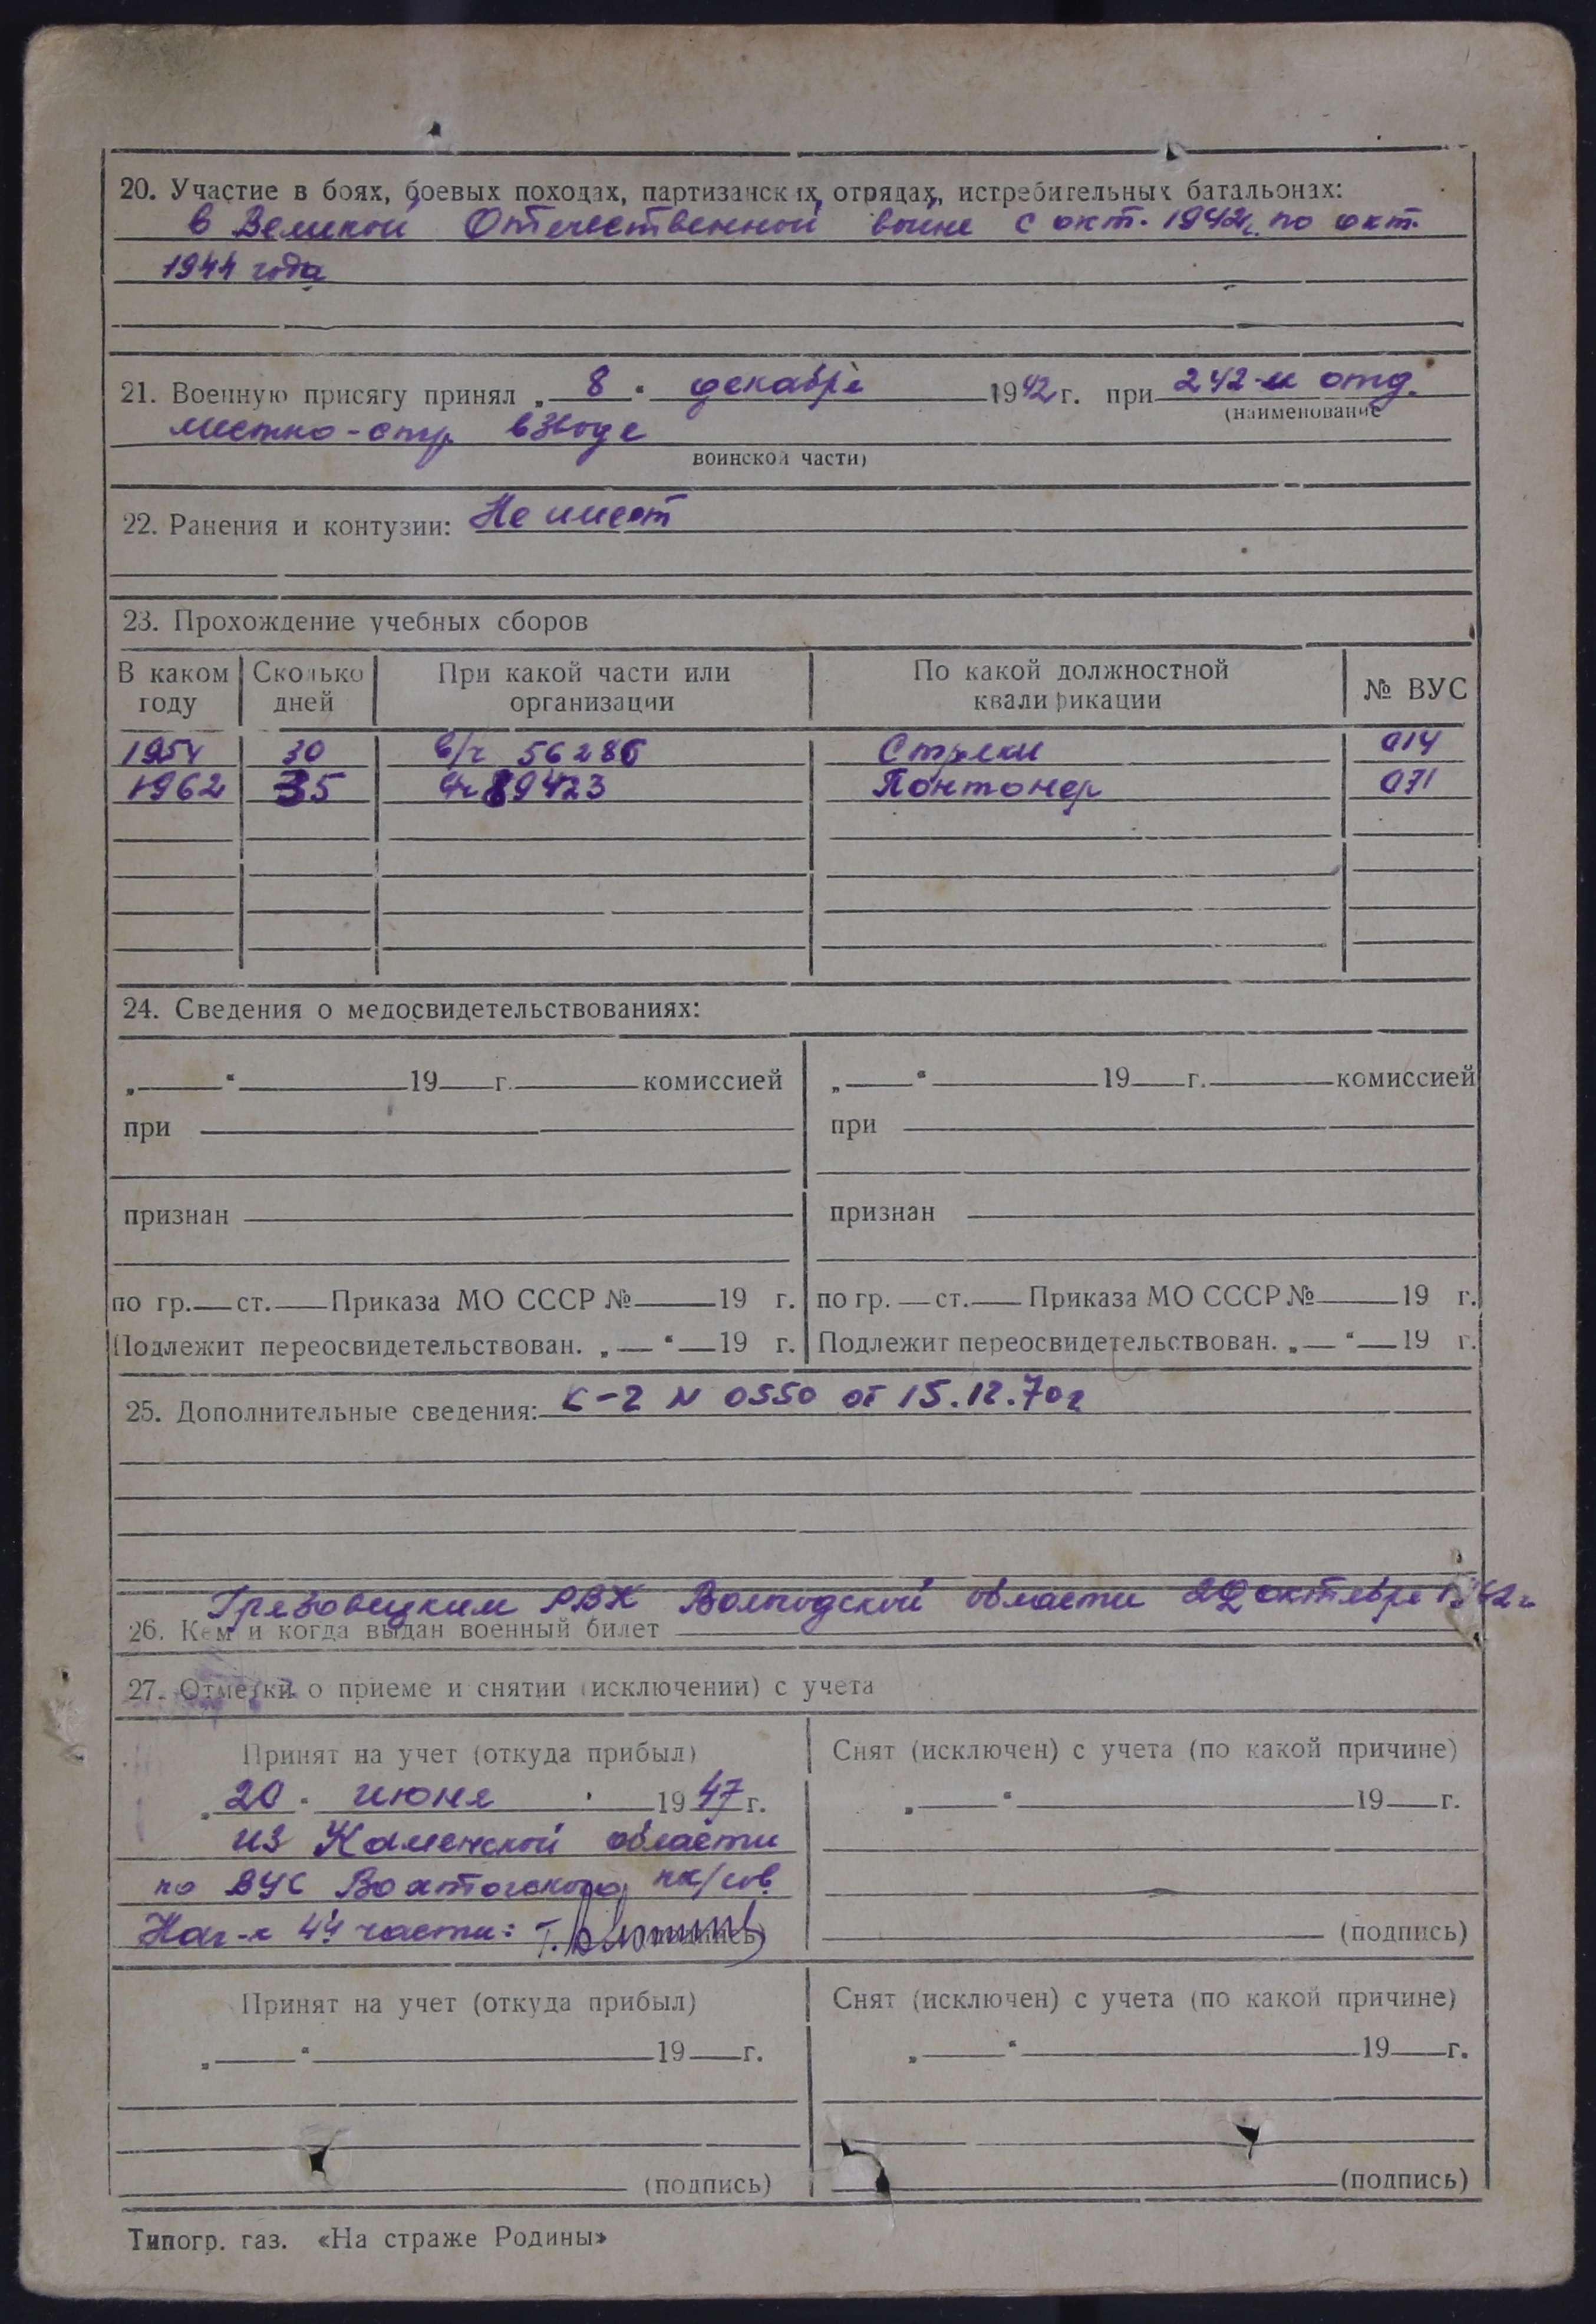 20. Участие в боях, боевых походах, партизанских отрядах, истребительных батальонах:
в Великой Отечественной войне с окт. 1942г. по окт.
1944 года
21. Военную присягу принял „ 8 “ декабря 1942 г. при 242-м отд.
(наименование
местно-стр. взводе
воинской части)
22. Ранения и контузии: Не имеет
23. Прохождение учебных сборов
В каком году Сколько дней При какой части или организации По какой должностной квалификации № ВУС
1954 30 в/ч 56286 Стрелки 014
1962 35 89423 Понтонер 071
24. Сведения о медосвидетельствованиях:
„ “ 19 г. комиссией „ “ 19 г. комиссией
при при
признан признан
по гр. ст. Приказа МО СССР № 19 г. по гр. ст. Приказа МО СССР № 19 г.
Подлежит переосвидетельствован. „ “ 19 г. Подлежит переосвидетельствован. „ “ 19 г.
25. Дополнительные сведения: К-2 N 0550 от 15.12.70г
Грязовецким РВК Вологодской области октября
26. Кем и когда выдан военный билет
27. Отметки о приеме и снятии (исключении) с учета
Принят на учет (откуда прибыл) Снят (исключен) с учета (по какой причине)
„ 20 “ июня 1947 г. „ “ 19 г.
из Каменской области
по ВУС Вохтогского
Нач-к 4й части: (подпись) (подпись)
Принят на учет (откуда прибыл) Снят (исключен) с учета (по какой причине)
„ “ 19 г. „ “ 19 г.
(подпись) (подпись)
Типогр. газ. «На страже Родины»